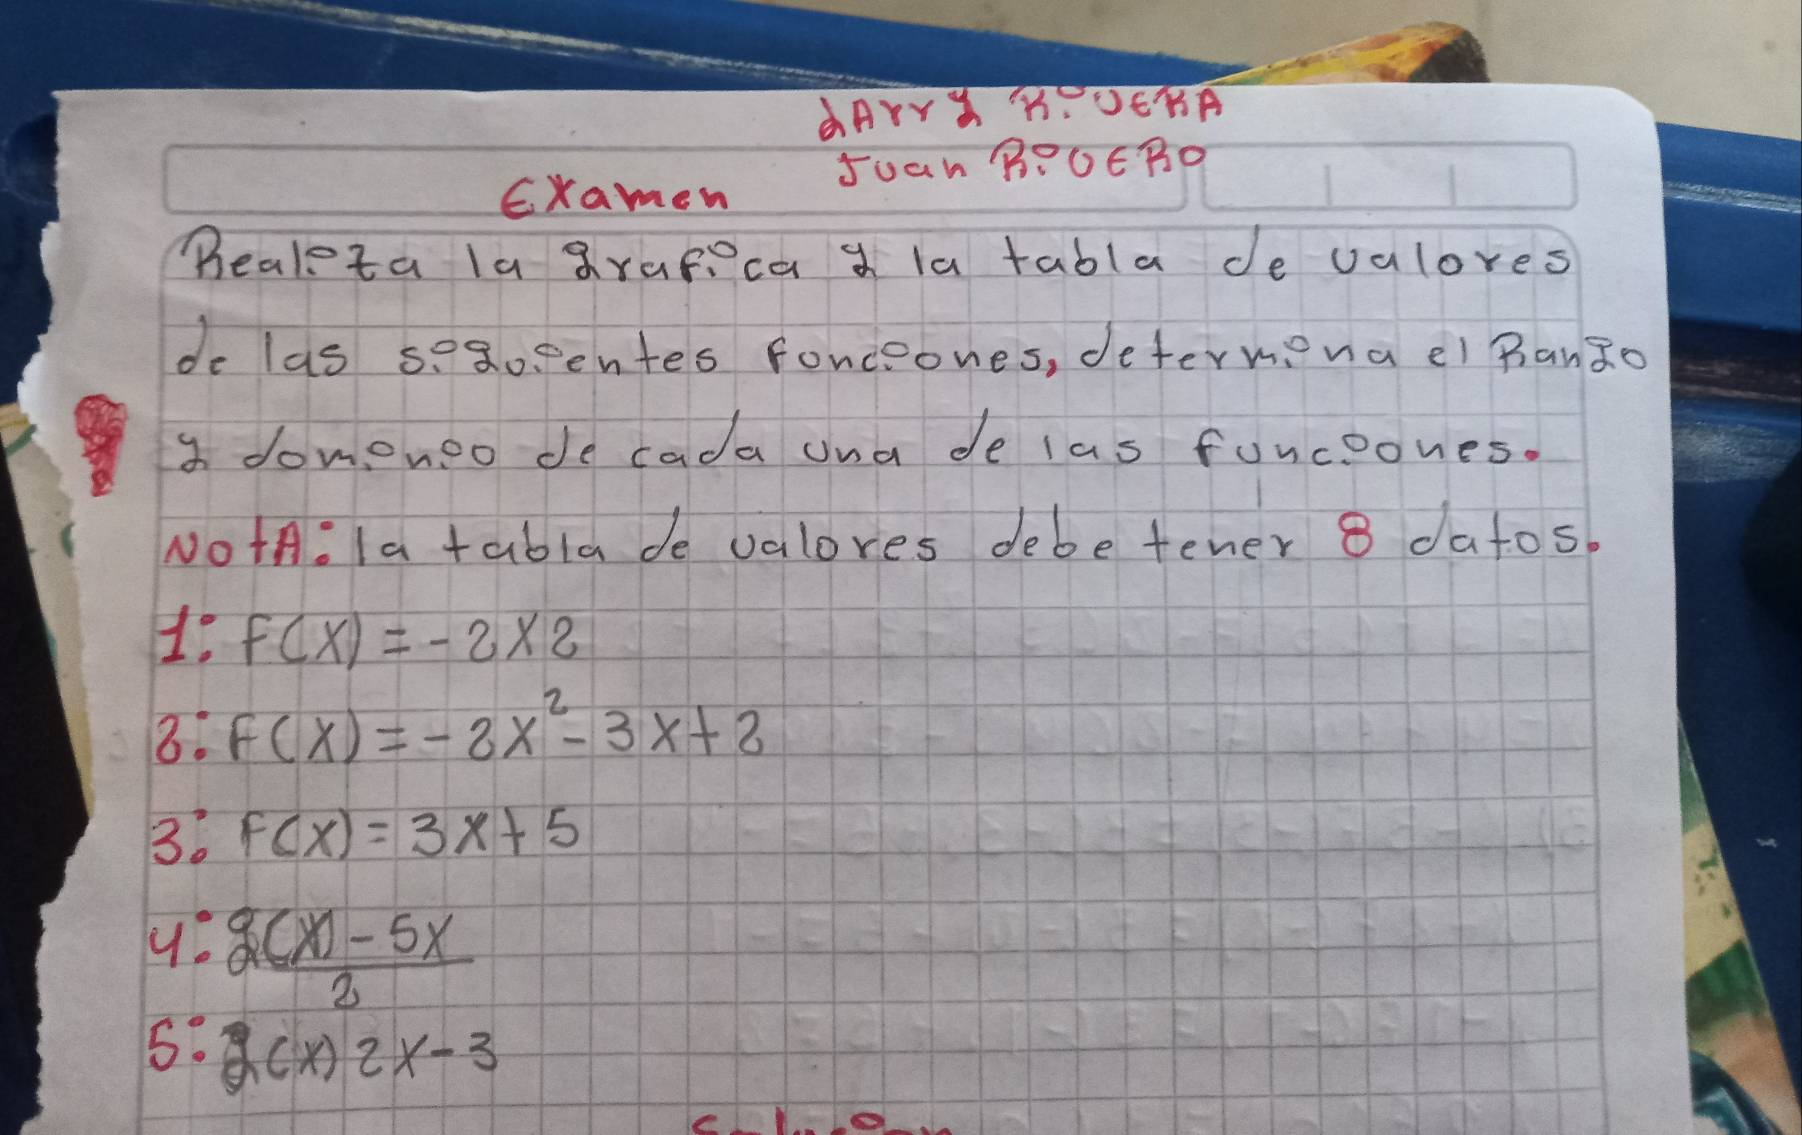 LArry RiVERA
Juan RiVERO
Examen
Realiza la grafica y la tabla de valores
de las siguientes funciones, determina el Rango
y dominio de cada una de las funciones.
NotA: la tabla de valores debe tener 8 datos.
1: F(X) = -2X2
2: F(X) = -2X² - 3X + 2
3: F(X) = 3X + 5
4: g(X) - 5X
2
5: g(X) 2X - 3
Solución